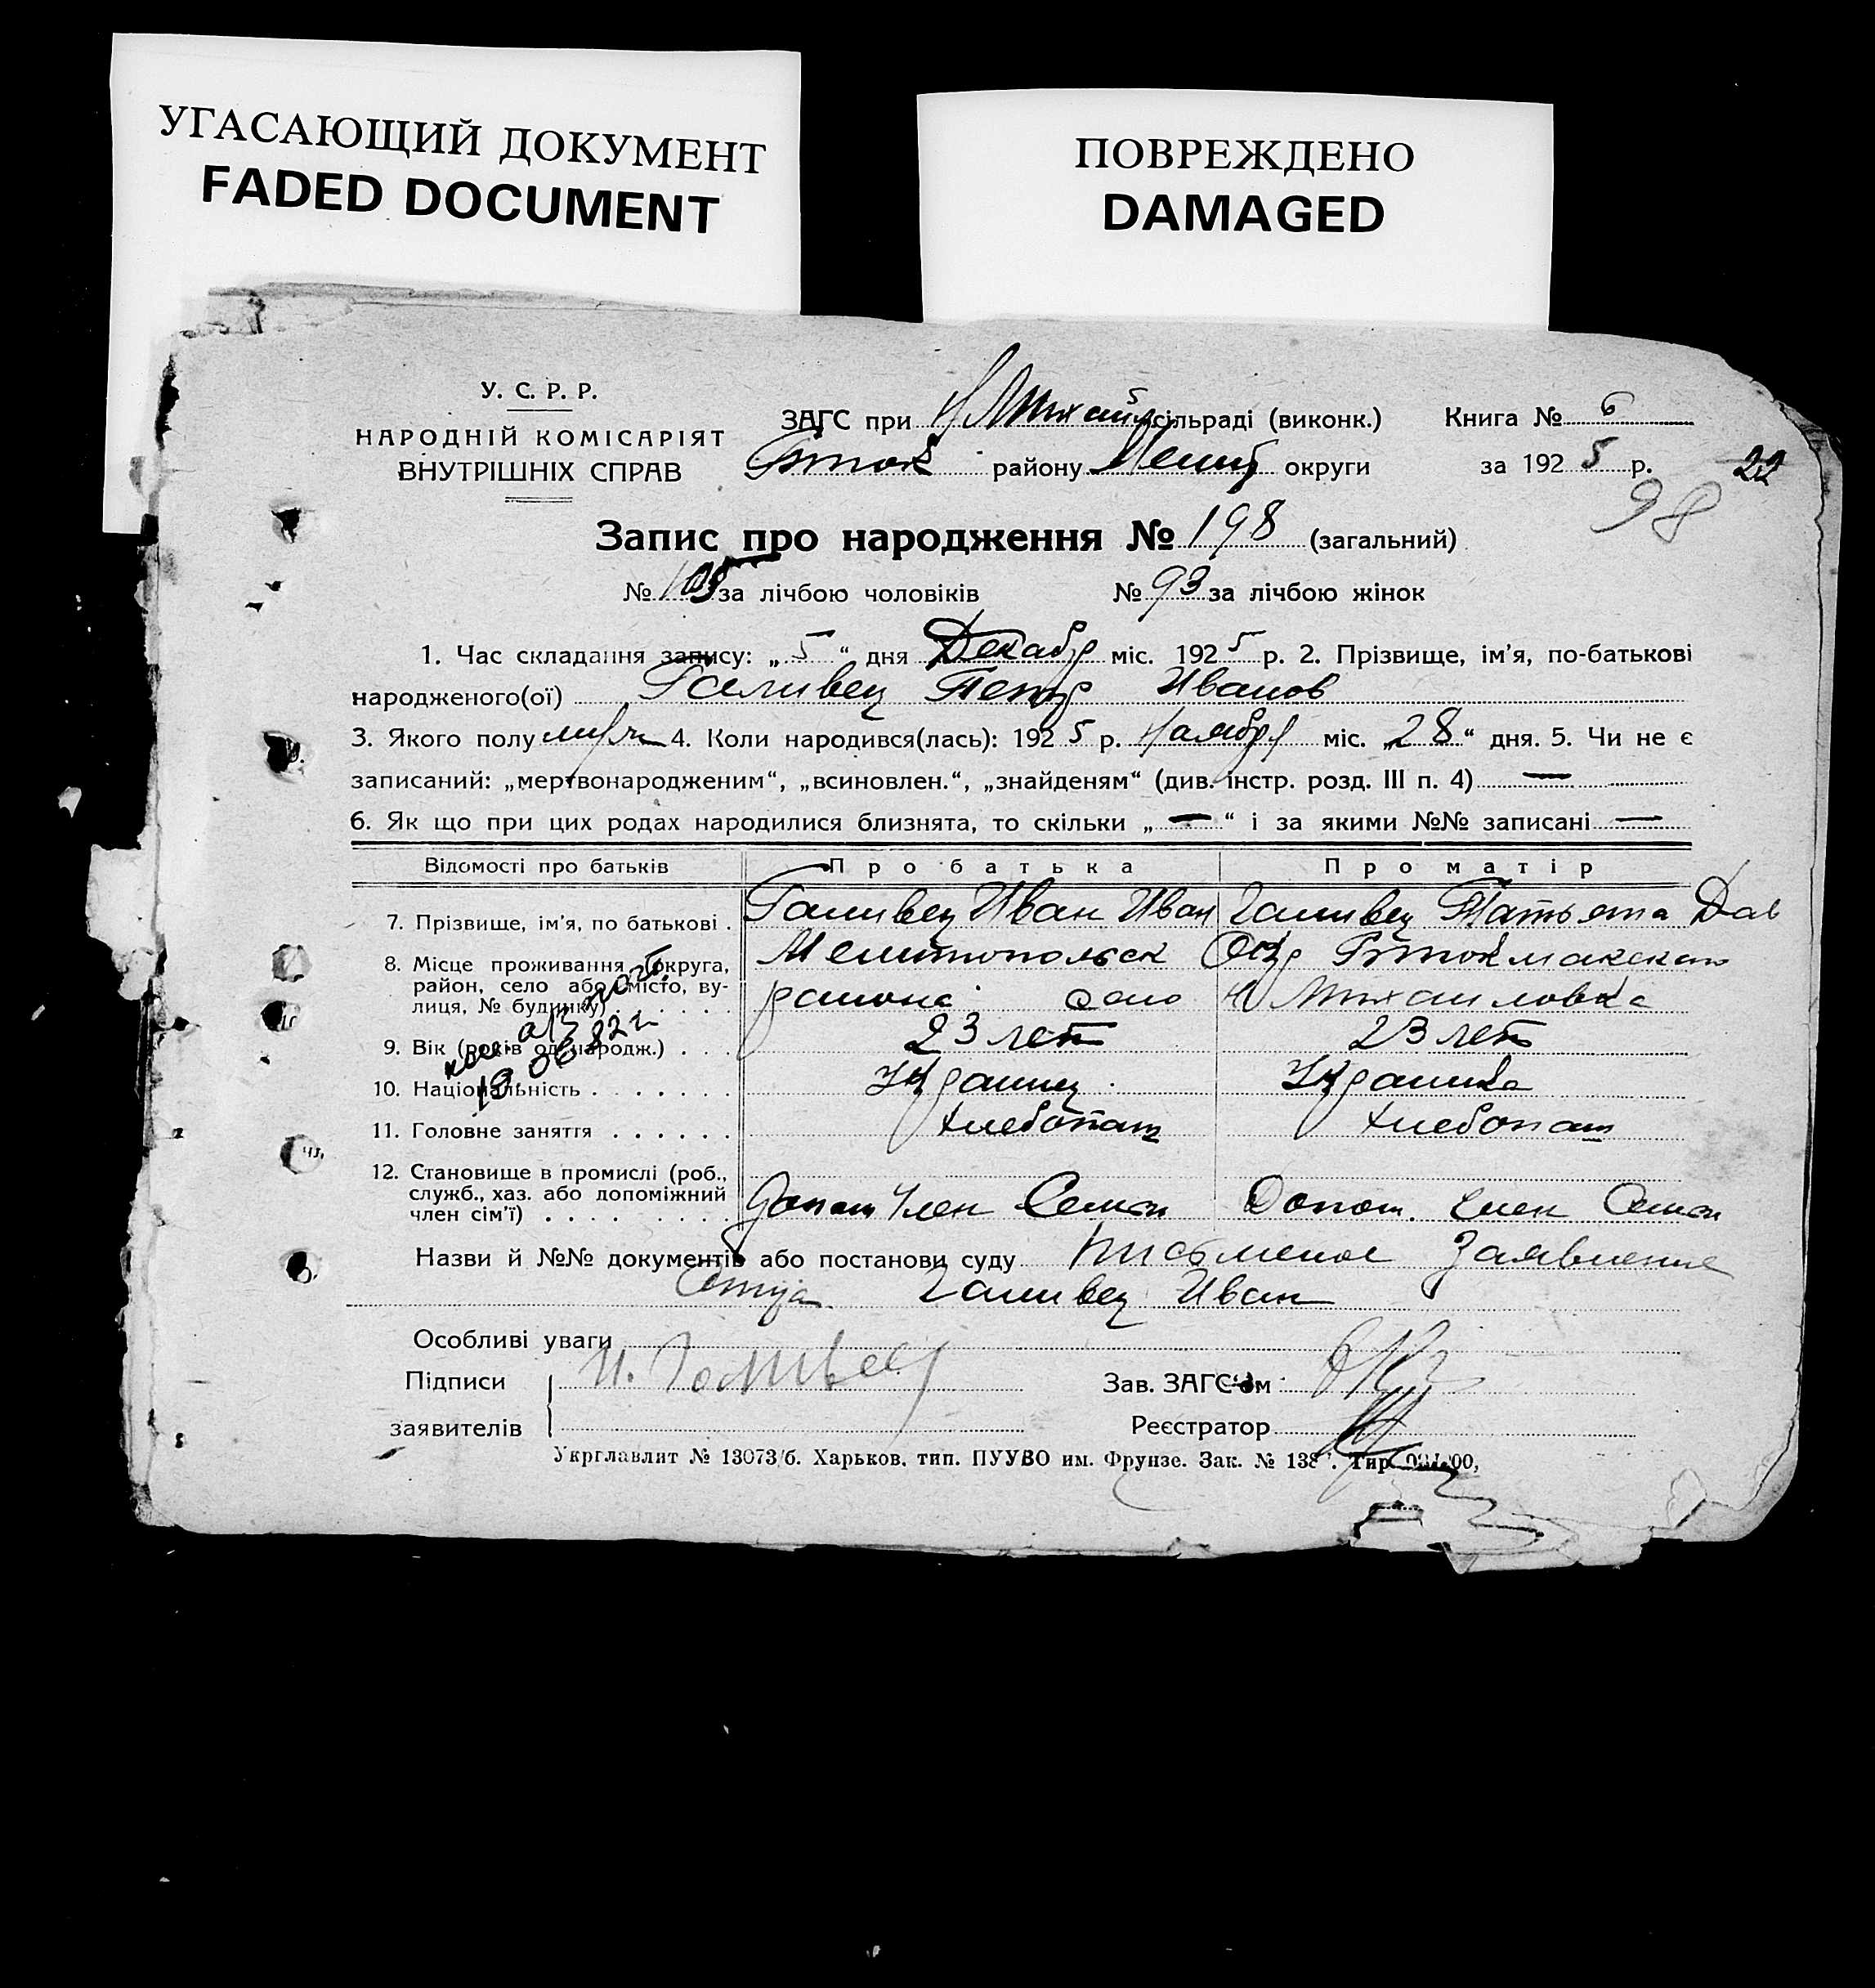 УГАСАЮЩИЙ ДОКУМЕНТ
FADED DOCUMENT
ПОВРЕЖДЕНО
DAMAGED
У. С. Р. Р.
НАРОДНІЙ КОМІСАРІЯТ
ВНУТРІШНІХ СПРАВ
ЗАГС при Н Михай сільраді (виконк.)
району Мелит округи
Книга № 6
за 192 5 р.
22
98
Запис про народження № 198 (загальний)
№ 105 за лічбою чоловіків № 93 за лічбою жінок
1. Час складання запису: „ 5 “ дня Декабр міс. 192 5 р. 2. Прізвище, ім’я, по-батькові
народженого(ої) Галивец Петр Иванов
3. Якого полу муж 4. Коли народився(лась): 192 5 р. Ноября міс. „ 28 “ дня. 5. Чи не є
записаний: „мертвонародженим“, „всиновлен.“, „знайденям“ (див. інстр. розд. III п. 4) —
6. Як що при цих родах народилися близнята, то скільки „ — “ і за якими №№ записані —
Відомості про батьків Про батька Про матір
7. Прізвище, ім’я, по батькові . Галивец Иван Иван Галивец Татьяна Дав
8. Місце проживання (округа, район, село або місто, вулиця, № будинку) Мелитопольск Окр Б Токмакского
района село Н Михайловка
9. Вік (років од народж.) . . . 23 лет 23 лет
10. Національність . . . . . . . Украинец Украинка
11. Головне заняття . . . . . . Хлебопаш Хлебопаш
12. Становище в промислі (роб.,
служб., хаз. або допоміжний
член сім’ї) . . . . . . . . Допом Член Семьи Допом. Член Семьи
Назви й №№ документів або постанови суду Письменое Заявление
Отца Галивец Иван
Особливі уваги
Підписи И. Галивец Зав. ЗАГС’ом
заявителів Реєстратор
Укрглавлит № 13073/б. Харьков. тип. ПУУВО им. Фрунзе. Зак. № 138